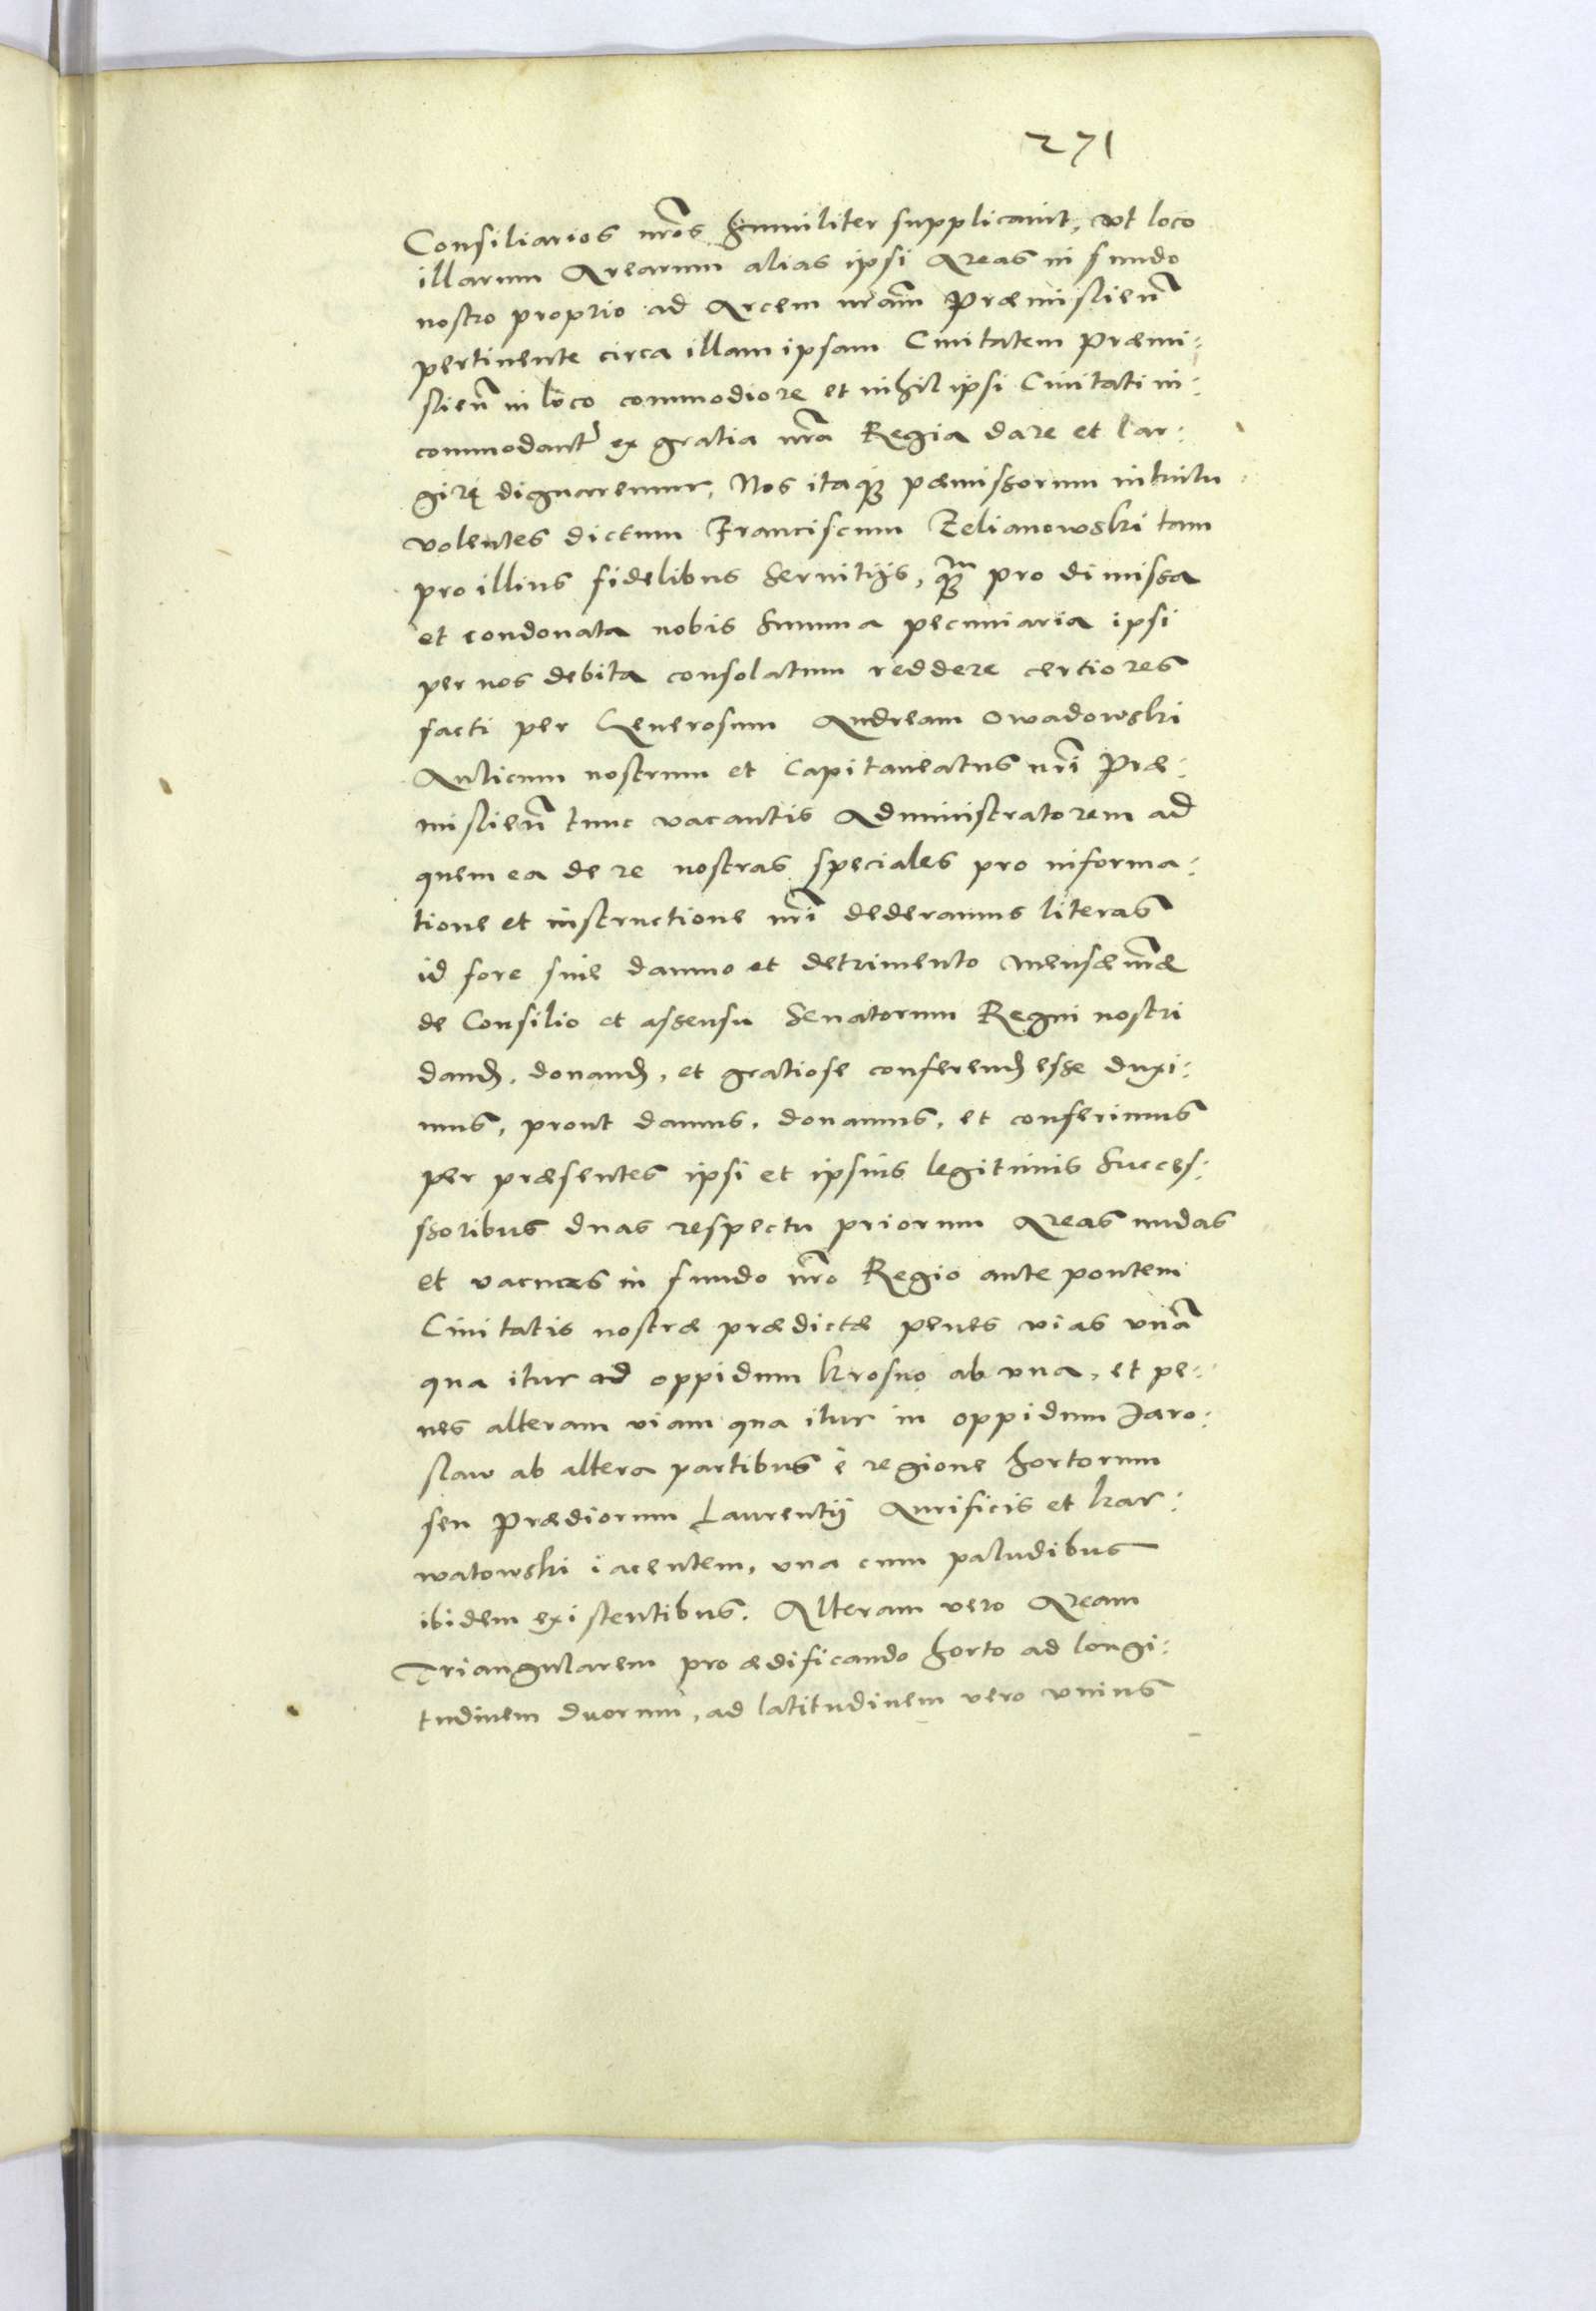 271
Consiliarios nr̃os humiliter supplicauit, vt loco
illarum Arearum alias ipsi Areas in fundo
nostro proprio ad Arcem nrãm Præmislieñ
pertinente circa illam ipsam Ciuitatem Præmi:
slieñ in loco commodiore et nihil ipsi Ciuitati in:
commodante ex gratia nr̃a Regia dare et lar:
girę dignaremur, Nos itaq3 præmissorum intuitu
volentes dictum Franciscum Zelianowski tam
pro illius fidelibus seruitijs, q3m pro dimissa
et condonata nobis summa pecuniaria ipsi
per nos debita consolatum reddere certiores
facti per Generosum Andream Owadowski
Aulicum nostrum et Capitaneatus nr̃i Præ:
mislieñ tunc vacantis Administratorem ad
quem ea de re nostras speciales pro informa:
tione et instructione nr̃i dederamus literas
id fore sine damno et detrimento mensæ nr̃æ
de Consilio et assensu Senatorum Regni nostri
dand, donand, et gratiose conferend esse duxi:
mus, prout damus, donamus, et conferimus
per præsentes ipsi et ipsius legitimis Succes:
ssoribus duas respectu priorum Areas nudas
et vacuas in fundo nr̃o Regio ante pontem
Ciuitatis nostræ prædictæ penes vias vnã
qua itur ad oppidum Krosno ab vna, et pe:
nes alteram viam qua itur in oppidum Jaro:
slaw ab altera partibus è regione hortorum
seu Prædiorum Laurentij Aurificis et Kar:
watowski iacentem, vna cum paludibus
ibidem existentibus. Alteram vero Aream
Triangularem pro ædificando horto ad longi:
tudinem duorum, ad latitudinem vero vnius